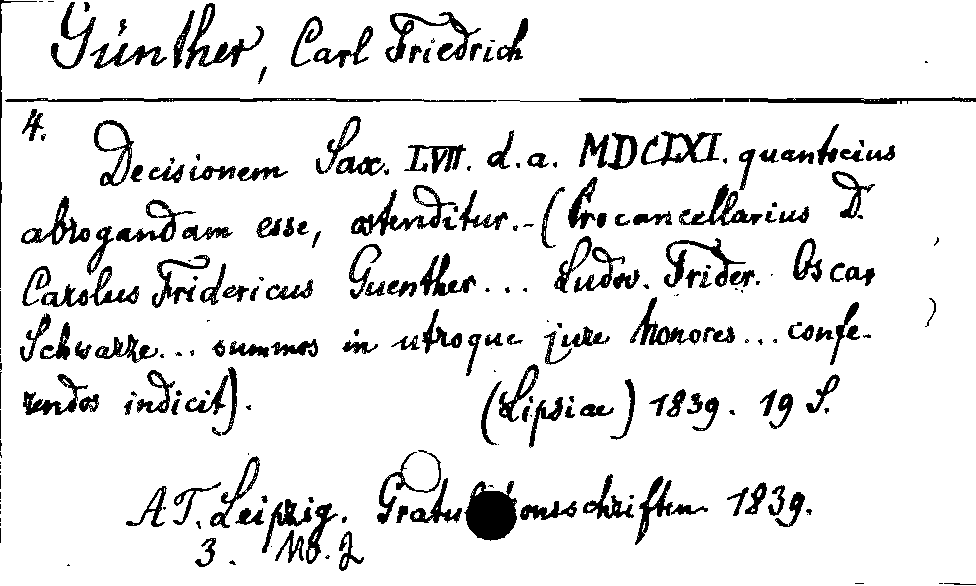 Günther, Carl Friedrich
4.
Decisionem Sax. LVII. d. a. MDCLXI. quantocius
abrogandam esse, ostenditur. - (Procancellarius D.
Carolus Fridericus Guenther... Ludov. Frider. Oscar
Schwarze... summos in utroque jure honores... confe-
rendos indicit). (Lipsiae) 1839. 19 S.
AT. Leipzig. Gratulationsschriften 1839.
3. No. 2